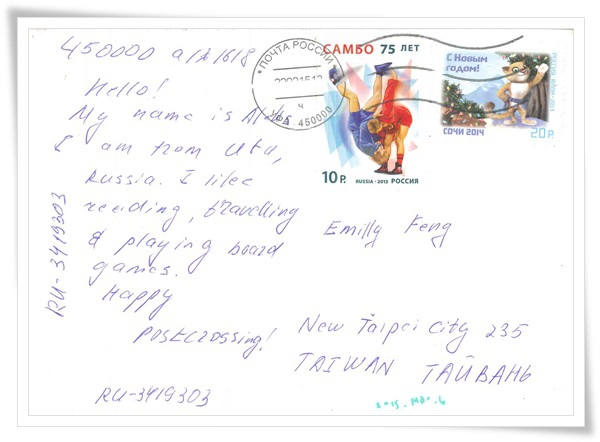 450000 а/я 1618
Hello!
My name is
I am from Ufa,
Russia. I like
reading, travelling
& playing board
games.
Happy
POSTCROSSING!
RU-3419303
RU-3419303
ПОЧТА РОССИИ
УФА 450000
САМБО 75 ЛЕТ
10 Р. RUSSIA · 2013 РОССИЯ
С Новым
годом!
СОЧИ 2014
20 Р.
Emilly Feng
New Taipei City 235
TAIWAN ТАЙВАНЬ